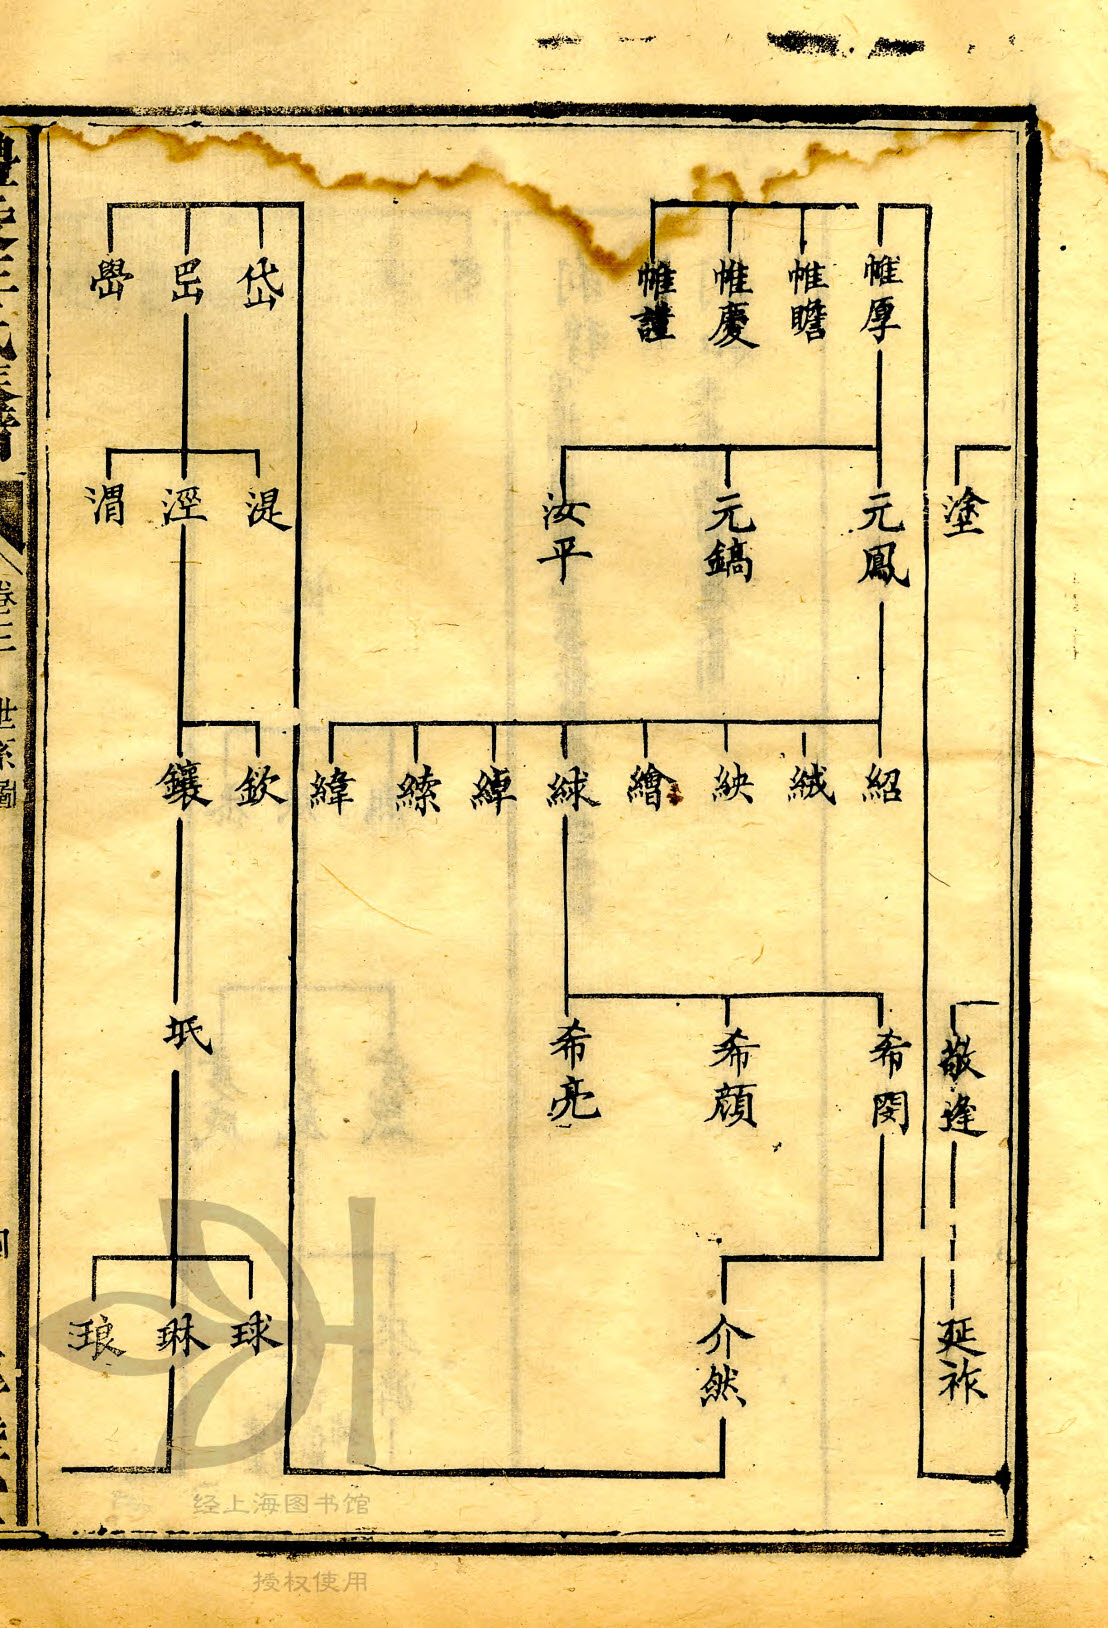 塗
敬逢
延祚
帷厚
帷瞻
帷慶
帷謹
元鳳
元鎬
汝平
紹
絨
紻
繪
絿
緽
縤
緯
希閔
希顏
希亮
介然
岱
岊
嶨
湜
涇
渭
欽
鑲
坻
球
琳
琅
氏
卷三
世系圖
经上海图书馆
授权使用